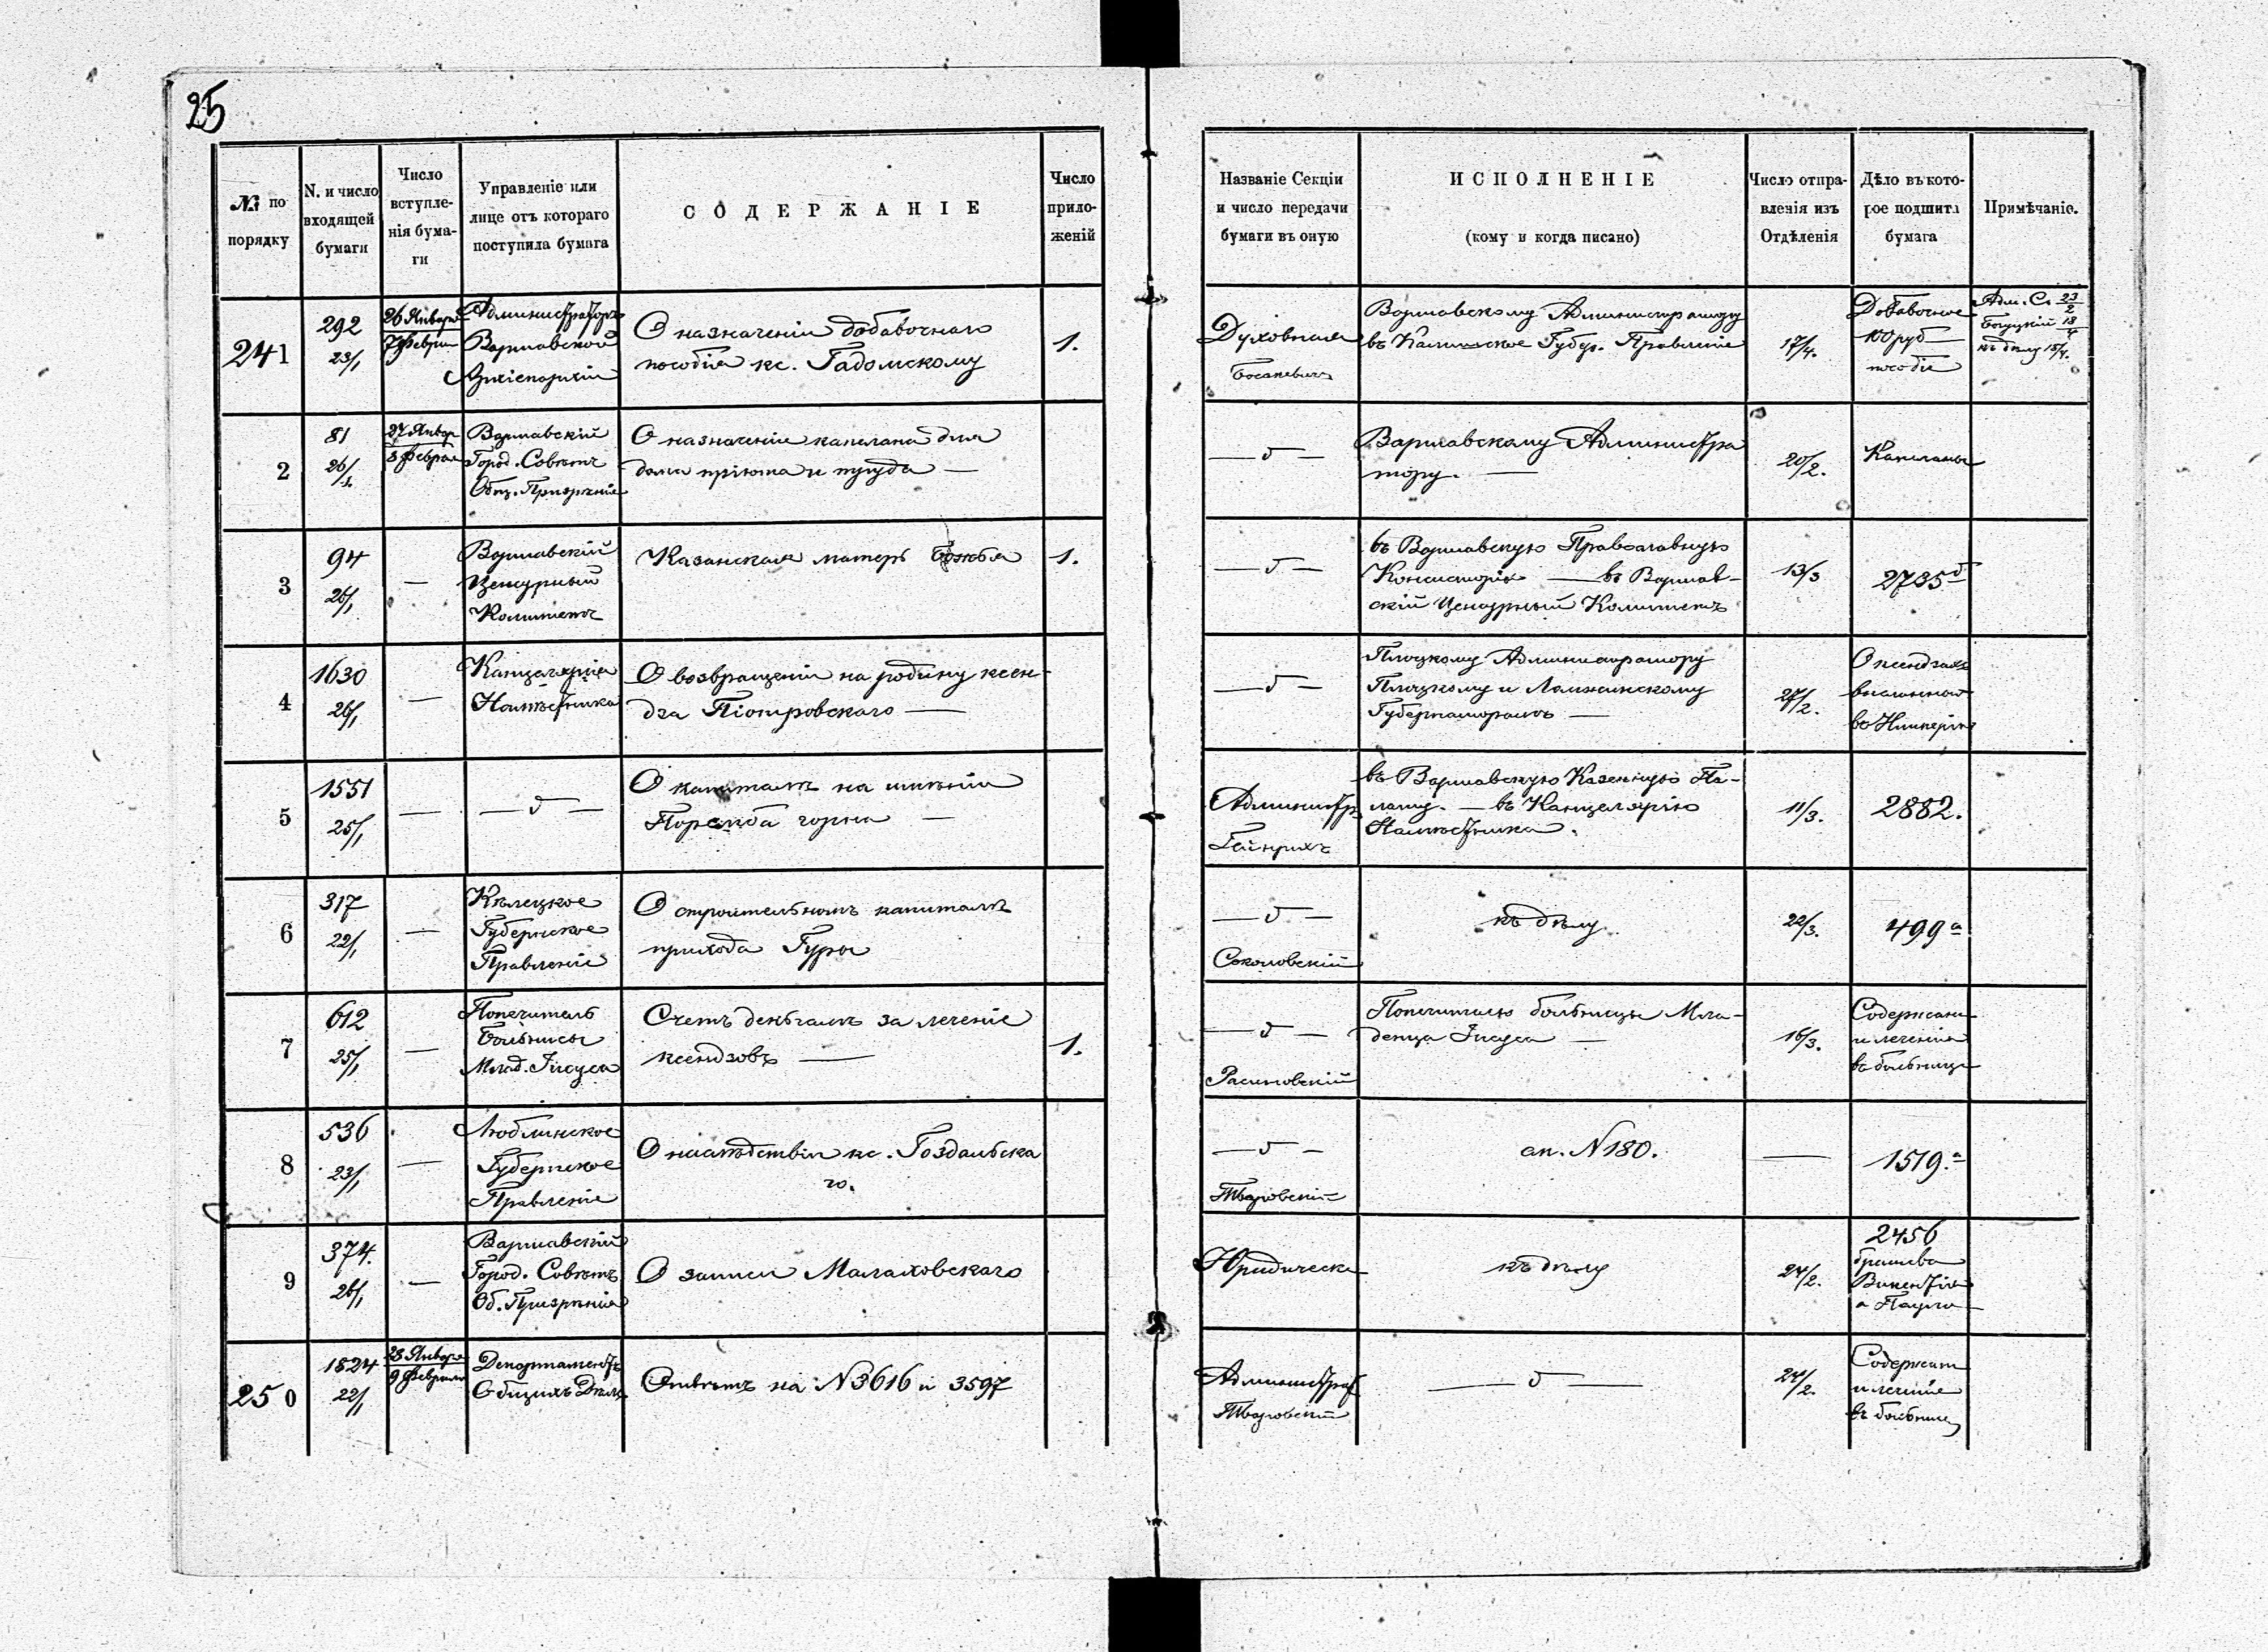 25
№ по порядку
N. и число входящей бумаги
Число вступле-нія бума-ги
Управленіе или лице отъ котораго поступила бумага
СОДЕРЖАНІЕ
Число прило-женій
Названіе Секціи и число передачи бумаги въ оную
ИСПОЛНЕНІЕ
(кому и когда писано)
Число отпра-вленія изъ Отдѣленія
Дѣло въ кото-рое подшита бумага
Примѣчаніе.
241
292
23/1
26 Января
7 Феврал
Администраторъ
Варшавской
Архіепархіи
О назначеніи добавочнаго
пособія кс. Гадомскому
1.
Духовная
Варшавскому Администратору
въ Калишское Губер. Правленіе
17/4.
Добавочное
100 руб
пособіе
Адм. С. 23/2
18/4
къ дѣлу 15/4.
2
81
26/1
27 Январ
8 Феврал
Варшавскій
Город. Совѣтъ
Общ. Призрѣнія
О назначеніи капелана для
дома пріюта и труда —
— д —
Варшавскому Администра
тору. —
20/2.
Капеланы
3
94
26/1
—
Варшавскій
Цензурный
Комитетъ
Казанская матерь Божья
1.
— д —
въ Варшавскую Православную
Консисторію — въ Варшав-
скій Цензурный Комитетъ
13/3
2735 д
4
1630
26/1
—
Канцелярія
Намѣстника
О возвращеніи на родину ксен-
дза Піотровскаго —
— д —
Плоцкому Администратору
Плоцкому и Ломжинскому
Губернаторамъ —
27/2.
О ксендзахъ
высланныхъ
въ Имперію
5
1551
25/1
—
— д —
О капиталѣ на имѣніи
Поремба горна —
Администр
Гейнрихъ
въ Варшавскую Казенную Па-
лату. — въ Канцелярію
Намѣстника.
11/3.
2882.
6
317
22/1
—
Кѣлецкое
Губернское
Правленіе
О строительномъ капиталѣ
прихода Гуры
— д —
Соколовскій
къ дѣлу
22/3.
499 а
7
612
25/1
—
Попечитель
Больницы
Млад. Іисуса
Счетъ деньгамъ за леченіе
ксендзовъ —
1.
— д —
Попечителю больницы Мла-
денца Іисуса —
16/3.
Содержані
и леченія
въ больниц
8
536
23/1
—
Люблинское
Губернское
Правленіе
О наслѣдствіи кс. Гоздальска
го.
— д —
сп. N 180.
—
1519. а
9
374.
26/1
—
Варшавскій
Город. Совѣтъ
Об. Призрѣнія
О записи Малаховскаго
Юридическ
къ дѣлу
24/2.
2456
Викентія
а Пауло
250
1824
22/1
28 Января
9 Февраля
Департаментъ
Общихъ Дѣлъ
Отвѣтъ на N 3616 и 3597
Администрат
— д —
24/2.
Содержан
и леченіе
въ больниц